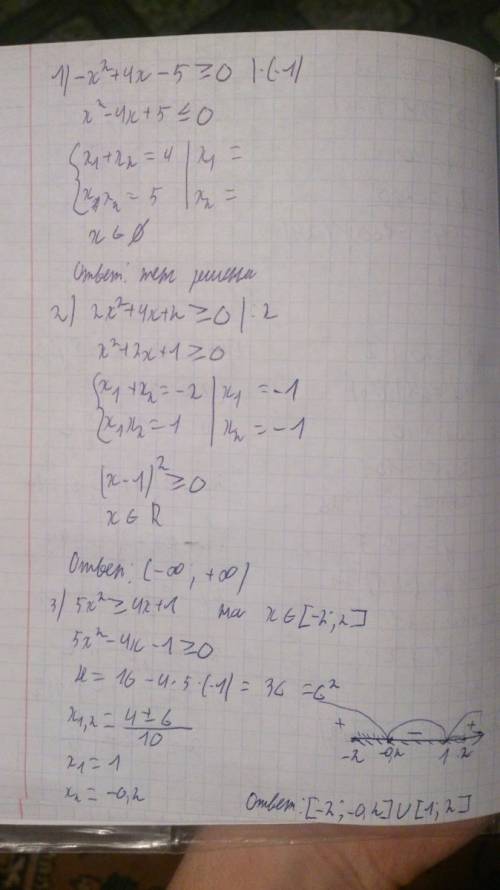 1) -x²+4x-5≥0 |·(-1)
x²-4x+5≤0
{x₁+x₂=4 | x₁=
{x₁x₂=5 | x₂=
x∈∅
Ответ: нет решений
2) 2x²+4x+2≥0 |:2
x²+2x+1≥0
{x₁+x₂=-2 | x₁=-1
{x₁x₂=1 | x₂=-1
(x-1)²≥0
x∈R
Ответ: (-∞, +∞)
3) 5x²≥4x+1 на x∈[-2;2]
5x²-4x-1≥0
D=16-4·5·(-1)=36=6²
x₁,₂=(4±6)/10
x₁=1
x₂=-0,2
+ − +
-2 -0,2 1 2
Ответ: [-2;-0,2]∪[1;2]